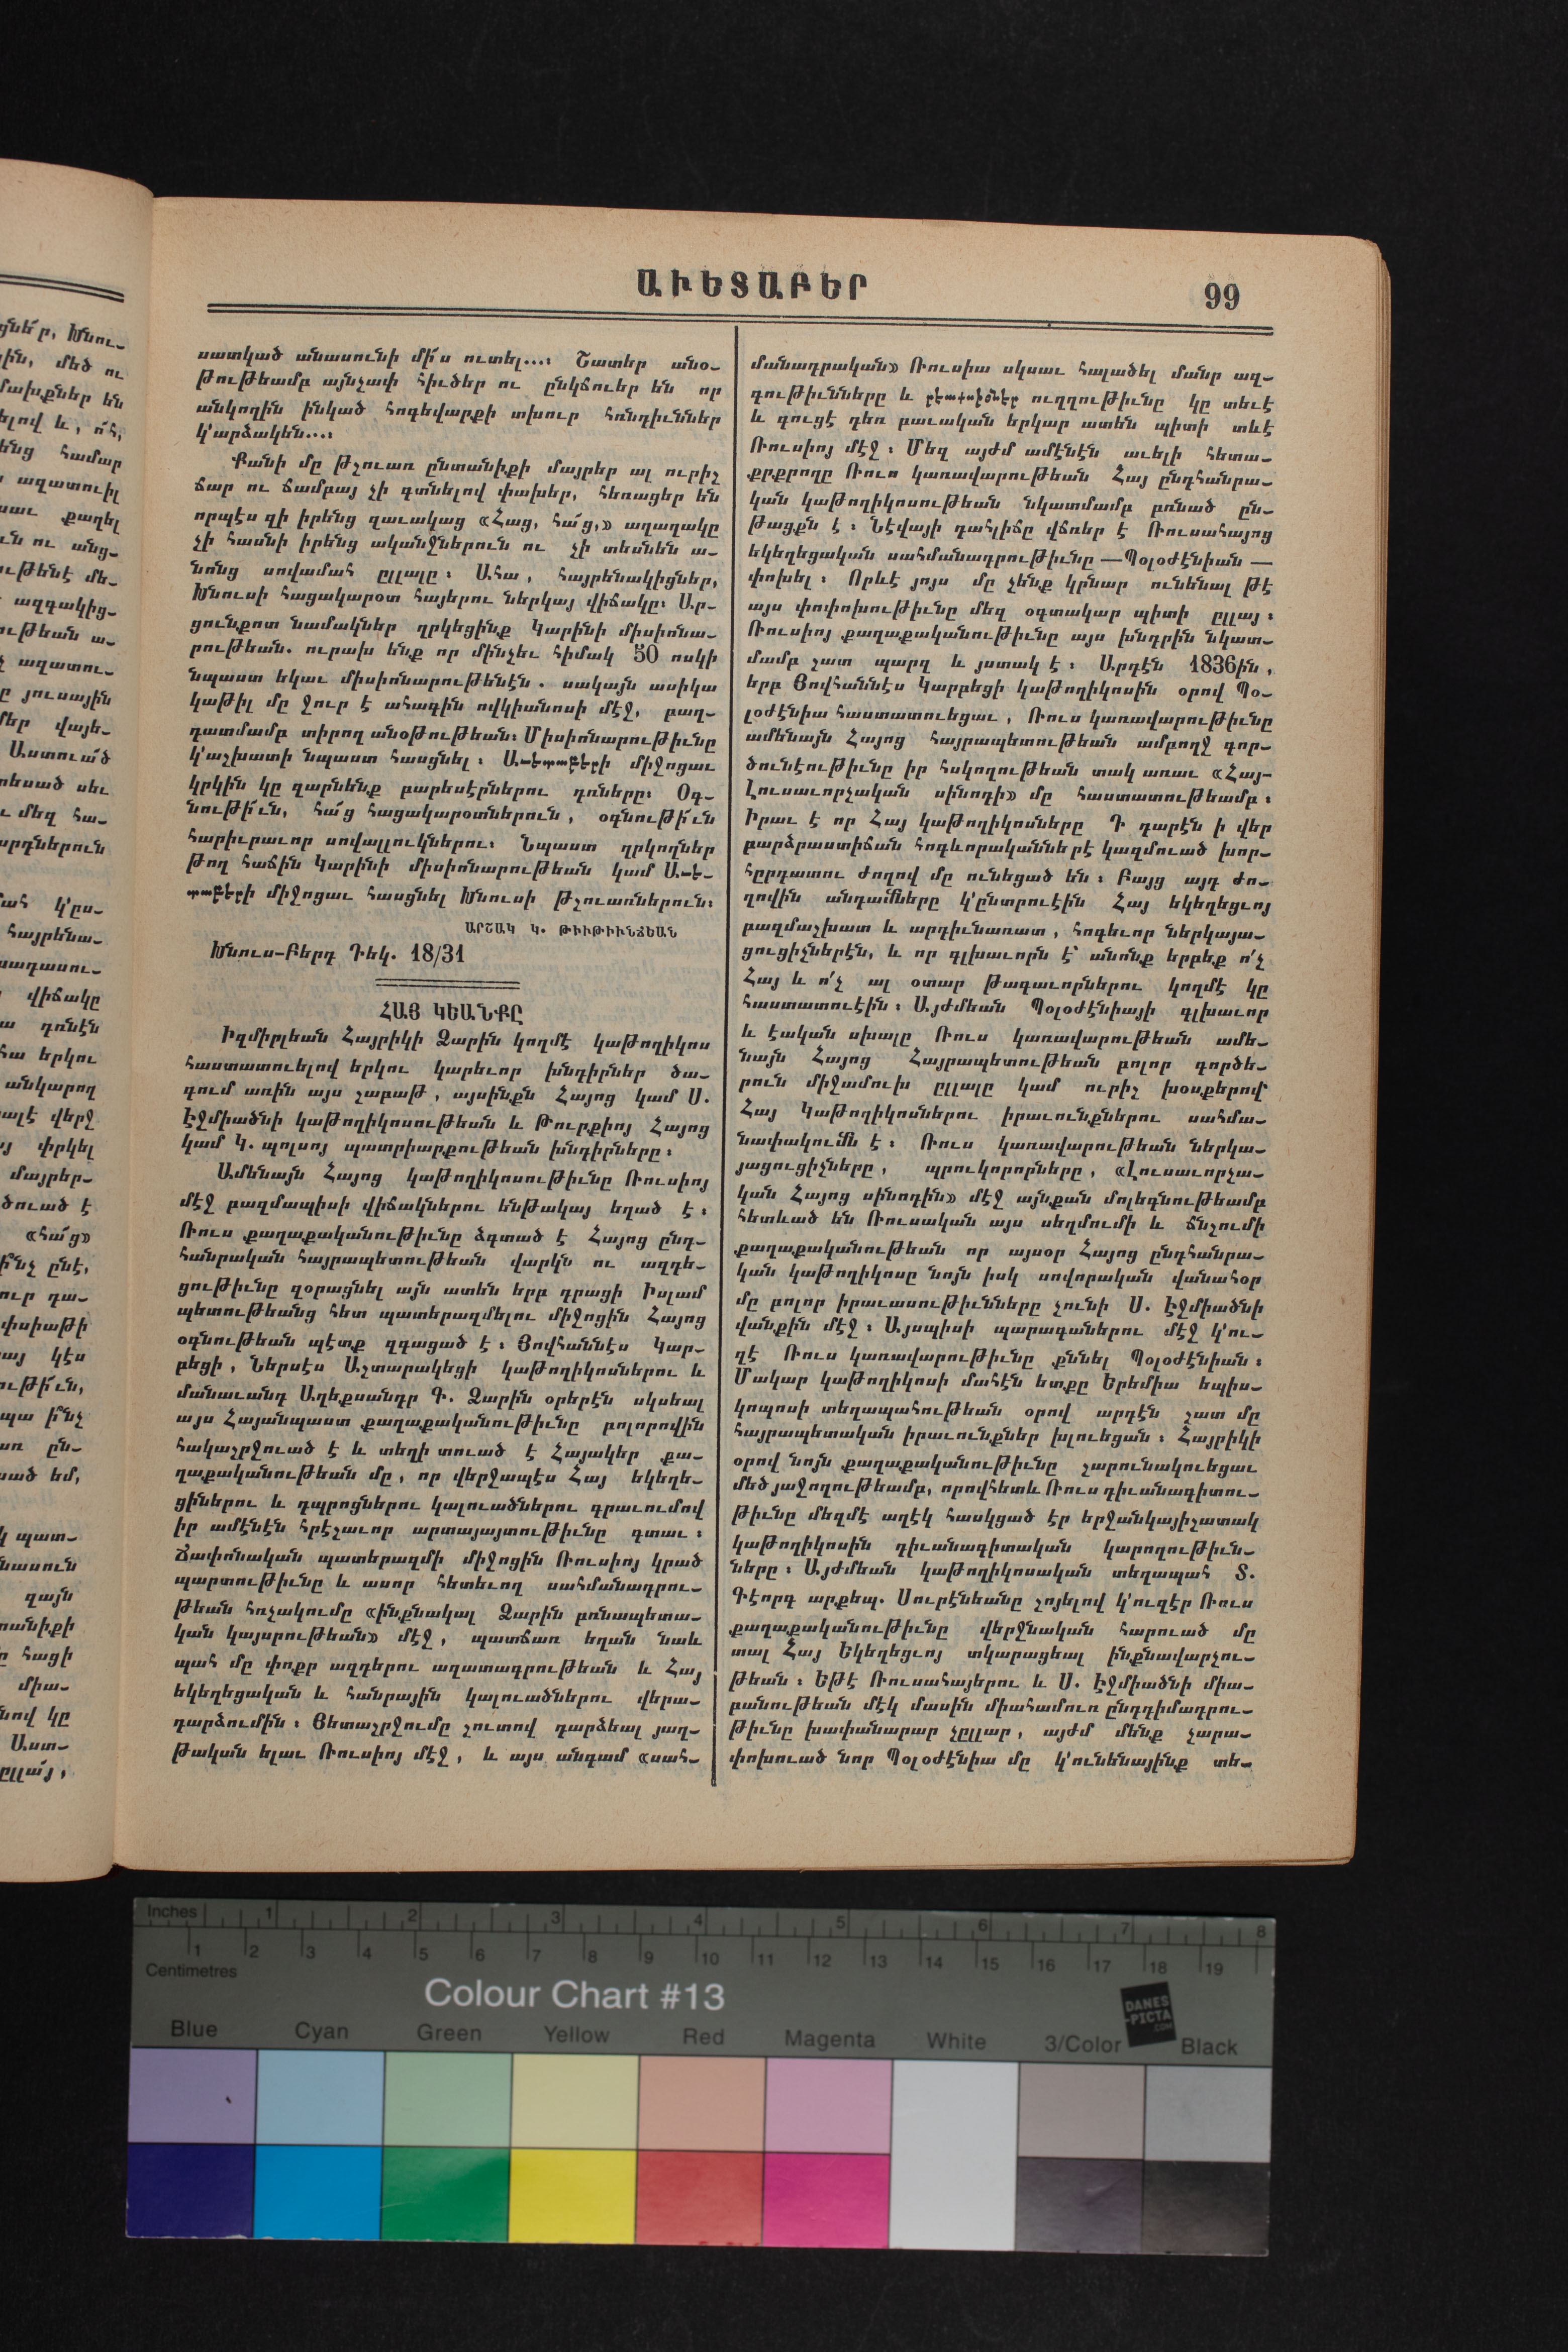 ԱՒԵՏԱԲԵՐ
99
սատկած անասունի մի՛ս ուտել...։ Շատեր անօ-
թութեամբ այնչափ հիւծեր ու ընկճուեր են որ
անկողին ինկած հոգեվարքի տխուր հռնդիւններ
կ'արձակեն...։
Քանի մը թշուառ ընտանիքի մայրեր ալ ուրիշ
ճար ու ճամբայ չի գտնելով փախեր, հեռացեր են
որպէս զի իրենց զաւակաց «Հաց, հա՛ց,» աղաղակը
չի հասնի իրենց ականջներուն ու չի տեսնեն ա-
նոնց սովամահ ըլլալը։ Ահա, հայրենակիցներ,
Խնուսի հացակարօտ հայերու ներկայ վիճակը։ Ար-
ցունքոտ նամակներ ղրկեցինք Կարինի միսիոնա-
րութեան. ուրախ ենք որ մինչեւ հիմակ 50 ոսկի
նպաստ եկաւ միսիոնարութենէն. սակայն ասիկա
կաթիլ մը ջուր է ահագին ովկիանոսի մէջ, բաղ-
դատմամբ տիրող անօթութեան։ Միսիոնարութիւնը
կ'աշխատի նպաստ հասցնել։ Աւետաբերի միջոցաւ
կրկին կը զարնենք բարեսէրներու դռները։ Օգ-
նութի՛ւն, հա՛ց հացակարօտներուն, օգնութի՛ւն
հարիւրաւոր սովալլուկներու։ Նպաստ ղրկողներ
թող հաճին Կարինի միսիոնարութեան կամ Աւե-
տաբերի միջոցաւ հասցնել Խնուսի թշուառներուն։
ԱՐՇԱԿ Կ. ԹԻՒԹԻՒՆՃԵԱՆ
Խնուս-Բերդ Դեկ. 18/31
ՀԱՅ ԿԵԱՆՔԸ
Իզմիրլեան Հայրիկի Ձարին կողմէ կաթողիկոս
հաստատուելով երկու կարեւոր խնդիրներ ծա-
գում առին այս շաբաթ, այսինքն Հայոց կամ Ս.
Էջմիածնի կաթողիկոսութեան և Թուրքիոյ Հայոց
կամ Կ. պոլսոյ պատրիարքութեան խնդիրները։
Ամենայն Հայոց կաթողիկոսութիւնը Ռուսիոյ
մէջ բազմապիսի վիճակներու ենթակայ եղած է։
Ռուս քաղաքականութիւնը ձգտած է Հայոց ընդ-
հանրական հայրապետութեան վարկն ու ազդե-
ցութիւնը զօրացնել այն ատեն երբ դրացի Իսլամ
պետութեանց հետ պատերազմելու միջոցին Հայոց
օգնութեան պէտք զգացած է։ Յովհաննէս Կար-
բեցի, Ներսէս Աշտարակեցի կաթողիկոսներու և
մանաւանդ Աղեքսանդր Գ. Ձարին օրերէն սկսեալ
այս Հայանպաստ քաղաքականութիւնը բոլորովին
հակաշրջուած է և տեղի տուած է Հայակեր քա-
ղաքականութեան մը, որ վերջապէս Հայ եկեղե-
ցիներու և դպրոցներու կալուածներու գրաւումով
իր ամէնէն հրէշաւոր արտայայտութիւնը գտաւ։
Ճափոնական պատերազմի միջոցին Ռուսիոյ կրած
պարտութիւնը և ասոր հետեւող սահմանադրու-
թեան հռչակումը «ինքնակալ Ձարին բռնապետա-
կան կայսրութեան» մէջ, պատճառ եղան նաև
պահ մը փոքր ազդերու ազատագրութեան և Հայ
եկեղեցական և հանրային կալուածներու վերա-
դարձումին։ Յետաշրջումը շուտով դարձեալ յաղ-
թական ելաւ Ռուսիոյ մէջ, և այս անգամ «սահ-
մանադրական» Ռուսիա սկսաւ հալածել մանր ազ-
գութիւնները և բէտսիմներ ուղղութիւնը կը տեւէ
և գուցէ դեռ բաւական երկար ատեն պիտի տևէ
Ռուսիոյ մէջ։ Մեզ այժմ ամէնէն աւելի հետա-
քրքրողը Ռուս կառավարութեան Հայ ընդհանրա-
կան կաթողիկոսութեան նկատմամբ բռնած ըն-
թացքն է։ Նէվայի դահլիճը վճռեր է Ռուսահայոց
եկեղեցական սահմանադրութիւնը —Պօլօժէնիան —
փոխել։ Որևէ յոյս մը չենք կրնար ունենալ թէ
այս փոփոխութիւնը մեզ օգտակար պիտի ըլլայ։
Ռուսիոյ քաղաքականութիւնը այս խնդրին նկատ-
մամբ շատ պարզ և յստակ է։ Արդէն 1836ին,
երբ Յովհաննէս Կարբեցի կաթողիկոսին օրով Պօ-
լօժէնիա հաստատուեցաւ, Ռուս կառավարութիւնը
ամենայն Հայոց հայրապետութեան ամբողջ գոր-
ծունէութիւնը իր հսկողութեան տակ առաւ «Հայ-
Լուսաւորչական սինոդի» մը հաստատութեամբ։
Իրաւ է որ Հայ կաթողիկոսները Դ դարէն ի վեր
բարձրաստիճան հոգևորականներէ կազմուած խոր-
հըրդատու ժողով մը ունեցած են։ Բայց այդ ժո-
ղովին անդամները կ'ընտրուէին Հայ եկեղեցւոյ
բազմաշխատ և արդիւնառատ, հոգեւոր ներկայա-
ցուցիչներէն, և որ գլխաւորն է՝ անոնք երբեք ո՛չ
Հայ և ո՛չ ալ օտար թագաւորներու կողմէ կը
հաստատուէին։ Այժմեան Պօլօժէնիայի գլխաւոր
և էական սխալը Ռուս կառավարութեան ամե-
նայն Հայոց Հայրապետութեան բոլոր գործե-
րուն միջամուխ ըլլալը կամ ուրիշ խօսքերով
Հայ Կաթողիկոսներու իրաւունքներու սահմա-
նափակումն է։ Ռուս կառավարութեան ներկա-
յացուցիչները, պրուկորորները, «Լուսաւորչա-
կան Հայոց սինոդին» մէջ այնքան մոլեգնութեամբ
հետևած են Ռուսական այս սեղմումի և ճնշումի
քաղաքականութեան որ այսօր Հայոց ընդհանրա-
կան կաթողիկոսը նոյն իսկ սովորական վանահօր
մը բոլոր իրաւասութիւնները չունի Ս. Էջմիածնի
վանքին մէջ։ Այսպիսի պարագաներու մէջ կ'ու-
ղէ Ռուս կառավարութիւնը քննել Պօլօժէնիան։
Մակար կաթողիկոսի մահէն ետքը Երեմիա եպիս-
կոպոսի տեղապահութեան օրով արդէն շատ մը
հայրապետական իրաւունքներ խլուեցան։ Հայրիկի
օրով նոյն քաղաքականութիւնը շարունակուեցաւ
մեծ յաջողութեամբ, որովհետև Ռուս դիւանագիտու-
թիւնը մեզմէ աղէկ հասկցած էր երջանկայիշատակ
կաթողիկոսին դիւանագիտական կարողութիւն-
ները։ Այժմեան կաթողիկոսական տեղապահ Տ.
Գէորգ արքեպ. Սուրէնեանը շոյելով կ'ուզէր Ռուս
քաղաքականութիւնը վերջնական հարուած մը
տալ Հայ Եկեղեցւոյ տկարացեալ ինքնավարչու-
թեան։ Եթէ Ռուսահայերու և Ս. Էջմիածնի միա-
բանութեան մէկ մասին միահամուռ ընդդիմադրու-
թիւնը խափանարար չըլլար, այժմ մենք չարա-
փոխուած նոր Պօլօժէնիա մը կ'ունենայինք տե-
Inches 1 2 3 4 5 6 7 8
1 2 3 4 5 6 7 8 9 10 11 12 13 14 15 16 17 18 19
Centimetres
Colour Chart #13
DANES
-PICTA
.COM
Blue Cyan Green Yellow Red Magenta White 3/Color Black